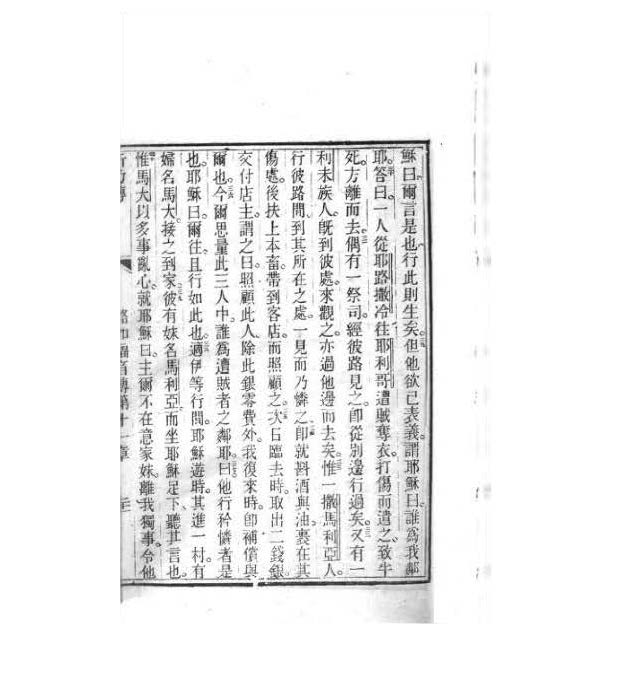 穌曰爾言是也行此則生矣但他欲己表義謂耶穌曰誰為我鄰
耶答曰一人從耶路撒冷往耶利哥遭賊奪衣打傷而遣之致半
死方離而去偶有一祭司經彼路見之即從別邊行過矣又有一
利未族人既到彼處來觀之亦過他邊而去矣惟一撒馬利亞人
行彼路間到其所在之處一見而乃憐之即就斟酒與油裹在其
傷處後扶上本畜帶到客店而照顧之次日臨去時取出二錢銀
交付店主謂之曰照顧此人除此銀零費外我復來時即補償與
爾也今爾思量此三人中誰為遭賊者之鄰耶曰他行矜憐者是
也耶穌曰爾往且行如此也適伊等行間耶穌遊時其進一村有
婦名馬大接之到家彼有妹名馬利亞而坐耶穌足下聽其言也
惟馬大以多事亂心就耶穌曰主爾不在意家妹離我獨事令他
路加福音傳第十一章